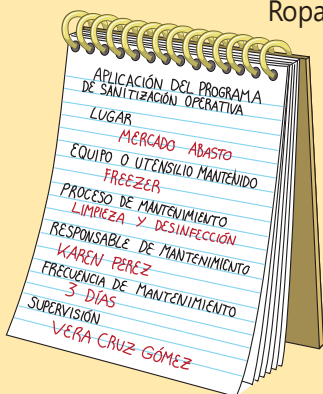 Ropa
APLICACIÓN DEL PROGRAMA
DE SANITIZACIÓN OPERATIVA
LUGAR
MERCADO ABASTO
EQUIPO O UTENSILIO MANTENIDO
FREEZER
PROCESO DE MANTENIMIENTO
LIMPIEZA Y DESINFECCIÓN
RESPONSABLE DE MANTENIMIENTO
KAREN PEREZ
FRECUENCIA DE MANTENIMIENTO
3 DÍAS
SUPERVISIÓN
VERA CRUZ GÓMEZ